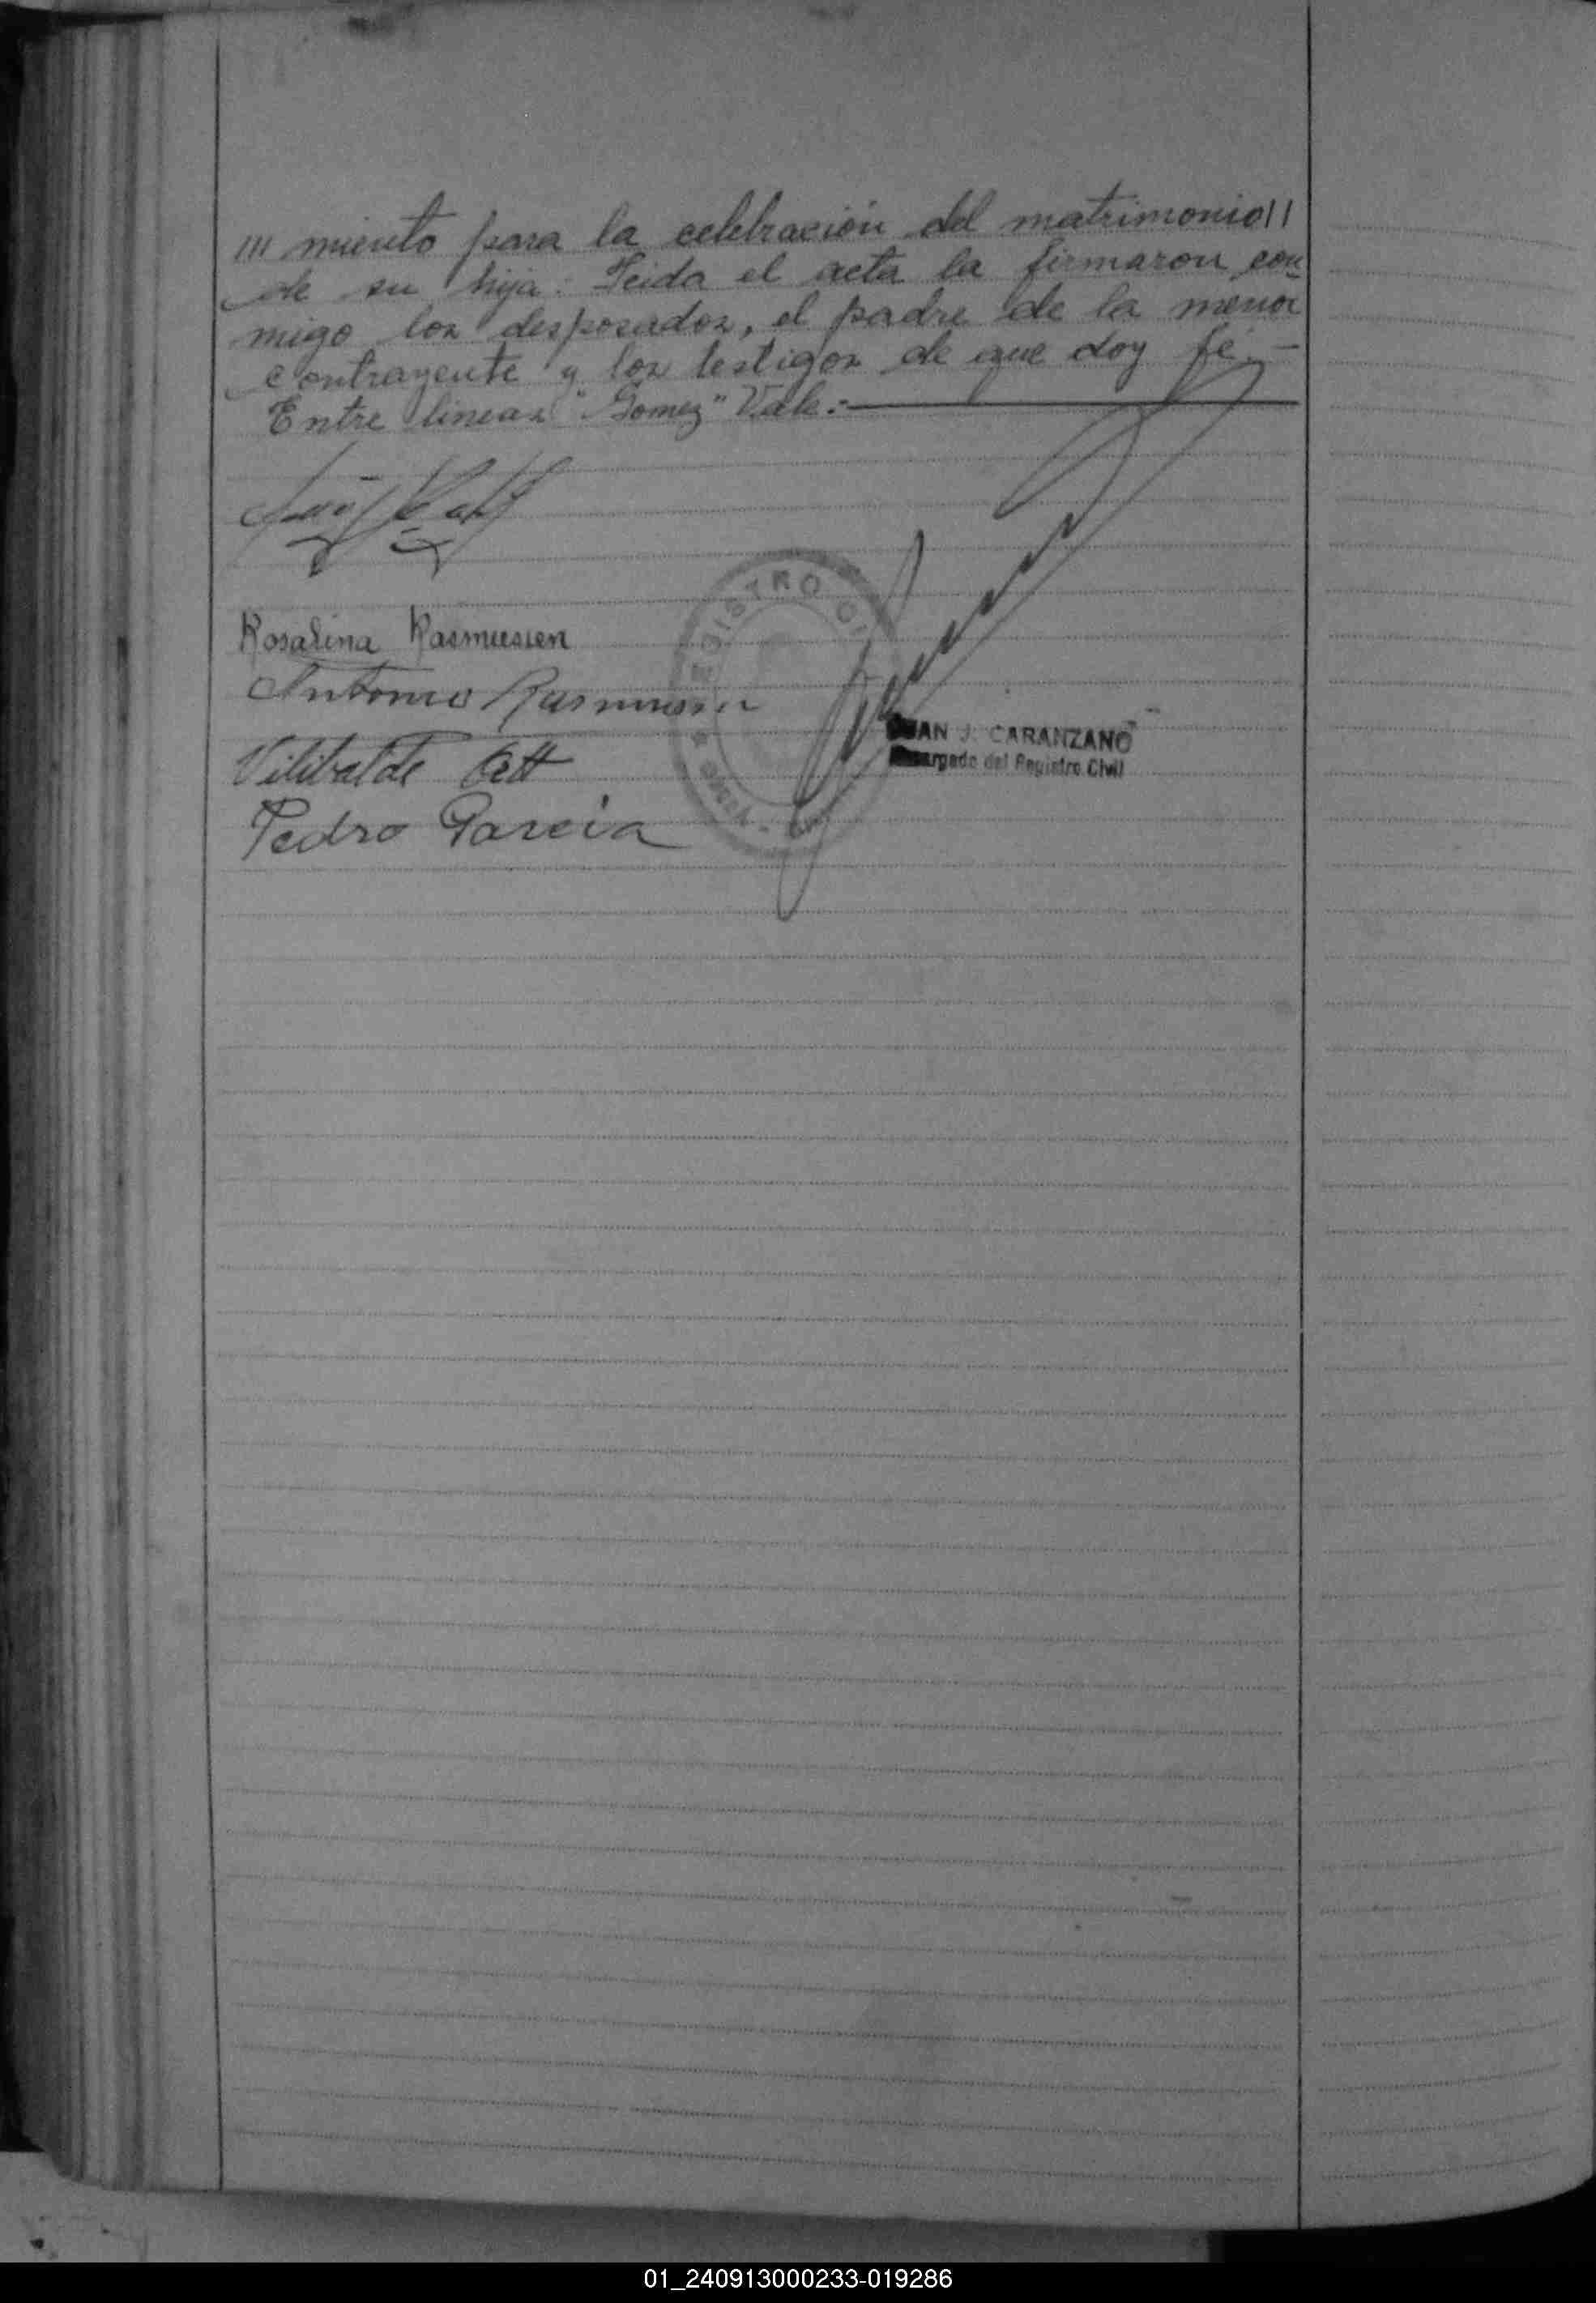 /// miento para la celebración del matrimonio//
de su hija: Leida el acta la firmaron con
migo los desposados, el padre de la menor
contrayente y los testigos de que doy fé.-
Entre lineas "Gomez" Vale:-
Rosalina Rasmussen
Antonio Rasmussen
Vilibalde Ott
Pedro Garcia
REGISTRO CI
JUAN J. CARANZANO
Encargado del Registro Civil
01_240913000233-019286